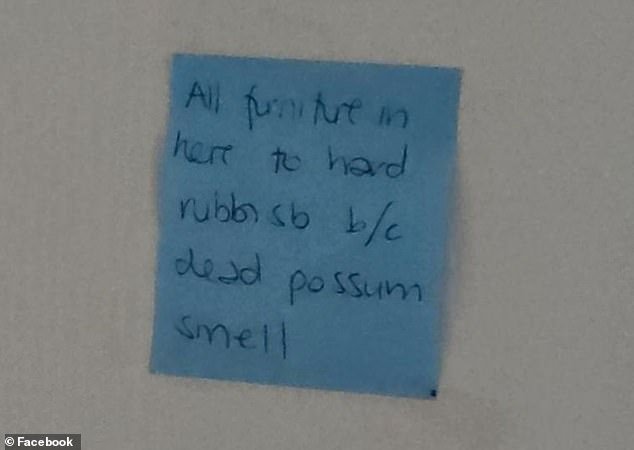 All furniture in
here to hard
rubbish b/c
dead possum
smell
© Facebook